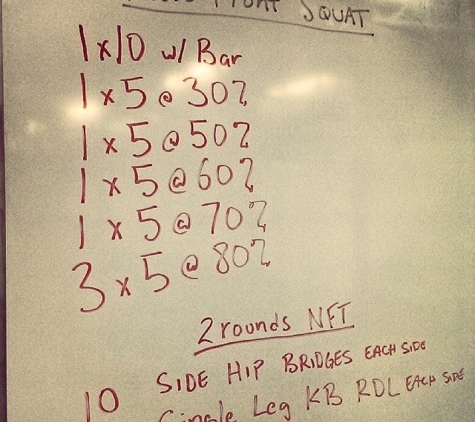 Front SQUAT
1x10 w/ Bar
1 x 5 @ 30%
1 x 5 @ 50%
1 x 5 @ 60%
1 x 5 @ 70%
3 x 5 @ 80%
2 rounds NFT
10 SIDE HIP BRIDGES EACH SIDE
Single Leg KB RDL EACH SIDE